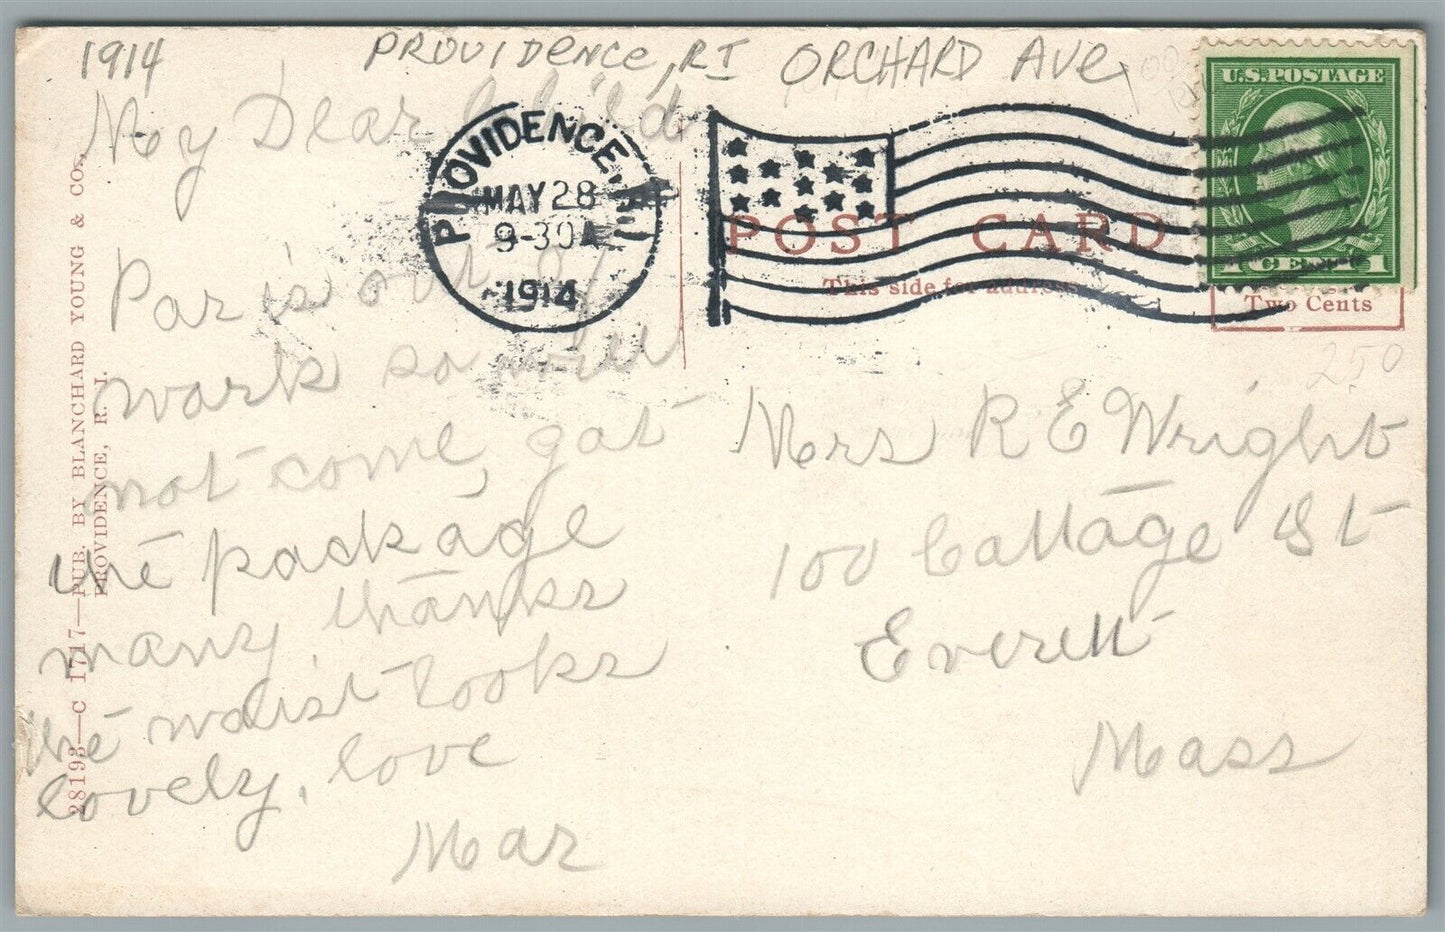 1914 PROVIDENCE, RI ORCHARD AVE
My Dear Child
Par is out of
work so will
not come, got
the package
many thanks
the waist looks
lovely, love
Mar
PROVIDENCE, R.I.
MAY 28
9-30A
1914
U.S. POSTAGE
1 CENT 1
POST CARD
This side for address
Two Cents
250
Mrs R E Wright
100 Cottage St
Everett
Mass
28193—C 1717—PUB. BY BLANCHARD YOUNG & CO.,
PROVIDENCE, R. I.